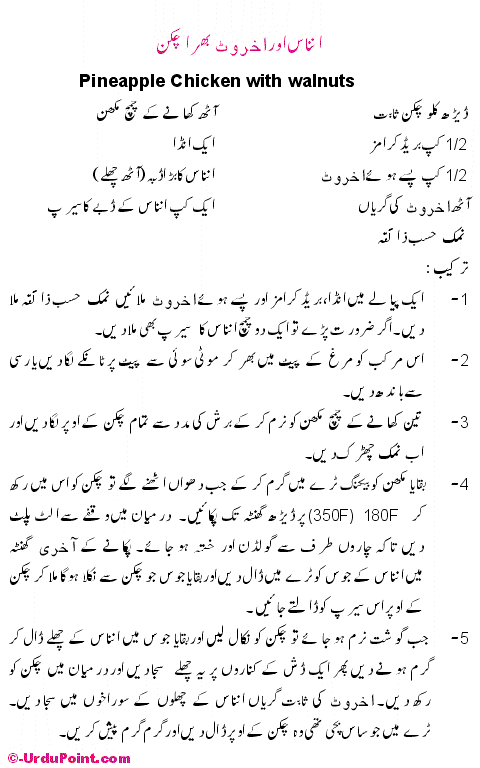 انناس اور اخروٹ بھرا چکن
Pineapple Chicken with walnuts
ڈیڑھ کلو چکن ثابت	آٹھ کھانے کے چمچ مکھن
1/2 کپ بریڈ کرامز	ایک انڈا
1/2 کپ پسے ہوئے اخروٹ	انناس کا بڑا ڈبہ (آٹھ چھلے)
آٹھ اخروٹ کی گریاں	ایک کپ انناس کے ڈبے کا سیرپ
نمک حسب ذائقہ
ترکیب :
1- ایک پیالے میں انڈا، بریڈ کرامز اور پسے ہوئے اخروٹ ملائیں نمک حسب ذائقہ ملا
دیں۔ اگر ضرورت پڑے تو ایک دو چمچ انناس کا سیرپ بھی ملا دیں۔
2- اس مرکب کو مرغ کے پیٹ میں بھر کر موٹی سوئی سے پیٹ پر ٹانکے لگا دیں یا رسی
سے باندھ دیں۔
3- تین کھانے کے چمچ مکھن کو نرم کر کے برش کی مدد سے تمام چکن کے اوپر لگا دیں اور
اب نمک چھڑک دیں۔
4- بقایا مکھن کو بیکنگ ٹرے میں گرم کر کے جب دھواں اٹھنے لگے تو چکن کو اس میں رکھ
کر 180F (350F) پر ڈیڑھ گھنٹہ تک پکائیں۔ درمیان میں وقفے سے الٹ پلٹ
دیں تاکہ چاروں طرف سے گولڈن اور خستہ ہو جائے۔ پکانے کے آخری گھنٹہ
میں انناس کے جوس کو ٹرے میں ڈال دیں اور بقایا جوس جو چکن سے نکلا ہو گا ملا کر چکن
کے اوپر اس سیرپ کو ڈالتے جائیں۔
5- جب گوشت نرم ہو جائے تو چکن کو نکال لیں اور بقایا جوس میں انناس کے چھلے ڈال کر
گرم ہونے دیں پھر ایک ڈش کے کناروں پر یہ چھلے سجا دیں اور درمیان میں چکن کو
رکھ دیں۔ اخروٹ کی ثابت گریاں انناس کے چھلوں کے سوراخوں میں سجا دیں۔
ٹرے میں جو ساس بچی تھی وہ چکن کے اوپر ڈال دیں اور گرم گرم پیش کریں۔
©-UrduPoint.com